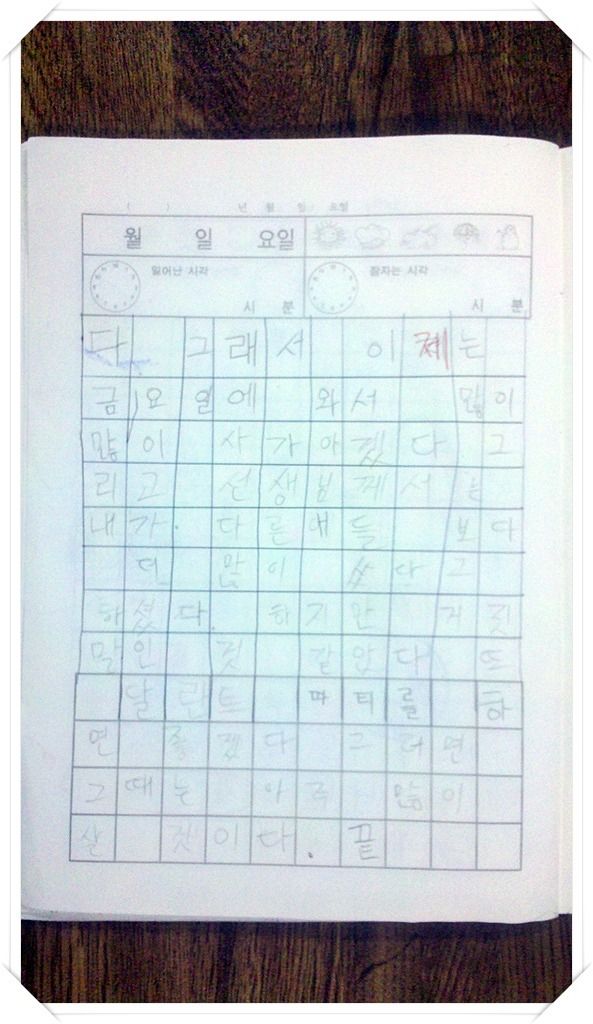 ( ) 년 월 일 요일
월 일 요일
일어난 시각 시 분 잠자는 시각 시 분
다. 그래서 이제는
금요일에 와서 많이
많이 사가야겠다 그
리고 선생님께서는
내가 다른애들 보다
더 많이 샀다 그
하셨다. 하지만 거짓
말인 것 같았다 또
달란트 파티를 하
면 좋겠다 그러면
그때는 아주 많이
살 것이다. 끝